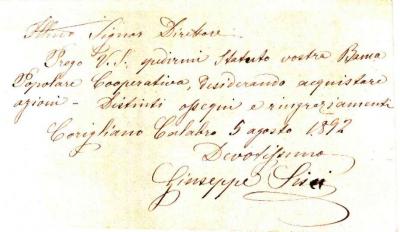 Illmo Signor Direttore
Prego V. S. spedirmi Statuto vostra Banca
Popolare Cooperativa, desiderando acquistare
azioni - Distinti ossequi e ringraziamenti
Corigliano Calabro 5 agosto 1892
Devotissimo
Giuseppe